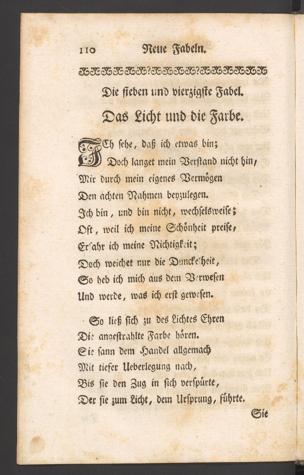 110 Neue Fabeln.
Die sieben und vierzigste Fabel.
Das Licht und die Farbe.
Ich sehe, daß ich etwas bin;
Doch langet mein Verstand nicht hin,
Mir durch mein eigenes Vermögen
Den ächten Nahmen beyzulegen.
Ich bin, und bin nicht, wechselsweise;
Oft, weil ich meine Schönheit preise,
Erfahr ich meine Nichtigkeit;
Doch weichet nur die Dunckelheit,
So heb ich mich aus dem Verwesen
Und werde, was ich erst gewesen.
So ließ sich zu des Lichtes Ehren
Die angestrahlte Farbe hören.
Sie sann dem Handel allgemach
Mit tiefer Ueberlegung nach,
Bis sie den Zug in sich verspürte,
Der sie zum Licht, dem Ursprung, führte.
Sie